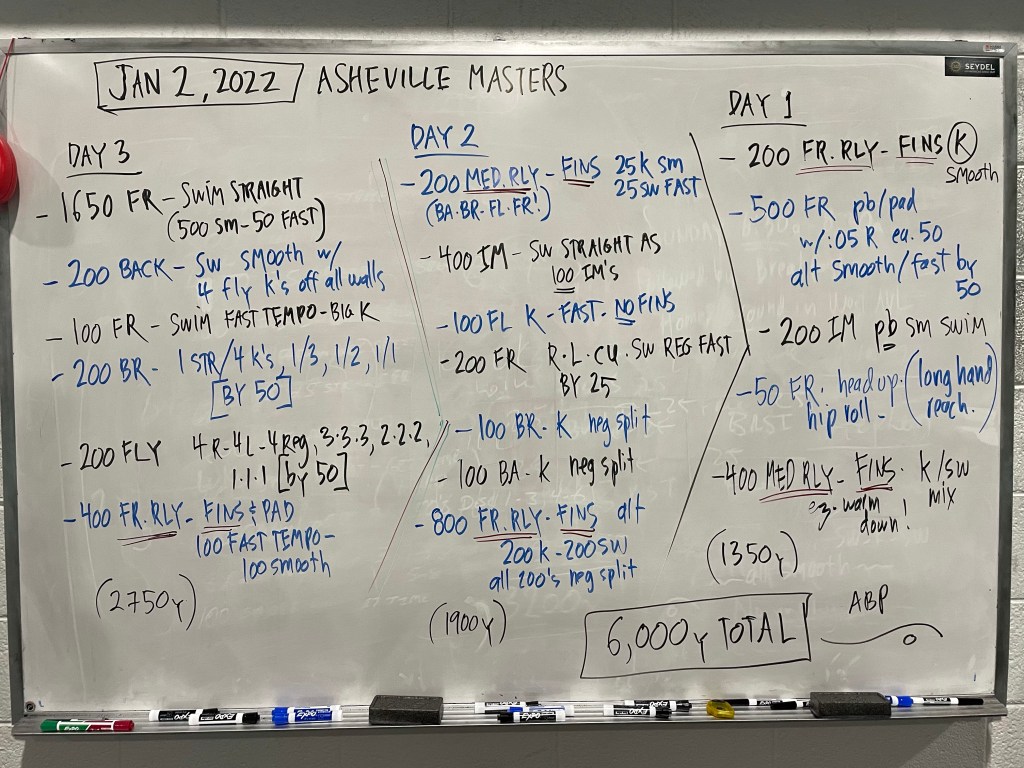 JAN 2, 2022 ASHEVILLE MASTERS
SEYDEL
DAY 3
- 1650 FR - SWIM STRAIGHT
(500 SM - 50 FAST)
- 200 BACK - SW SMOOTH w/
4 fly k's off all walls
- 100 FR - SWIM FAST TEMPO - BIG K
- 200 BR - 1 STR/4 K's, 1/3, 1/2, 1/1
[BY 50]
- 200 FLY 4R-4L-4Reg, 3·3·3, 2·2·2,
1·1·1 [by 50]
- 400 FR. RLY - FINS & PAD
100 FAST TEMPO -
100 smooth
(2750y)
DAY 2
- 200 MED. RLY - FINS 25 K SM
25 SW FAST
(BA·BR·FL·FR!)
- 400 IM - SW STRAIGHT AS
100 IM's
- 100 FL K - FAST - NO FINS
- 200 FR R·L·CU·SW REG FAST
BY 25
- 100 BR - K neg split
- 100 BA - K neg split
- 800 FR. RLY - FINS alt
200 k - 200 SW
all 200's neg split
(1900y)
DAY 1
- 200 FR. RLY - FINS K
SMOOTH
- 500 FR pb/pad
w/ :05 R ea. 50
alt smooth/fast by
50
- 200 IM pb sm swim
- 50 FR. head up · (long hand
hip roll - reach.)
- 400 MED RLY - FINS · k/sw
mix
ez - warm
down!
(1350y)
6,000y TOTAL
ABP
EXPO
EXPO
EXPO
EXPO
EXPO